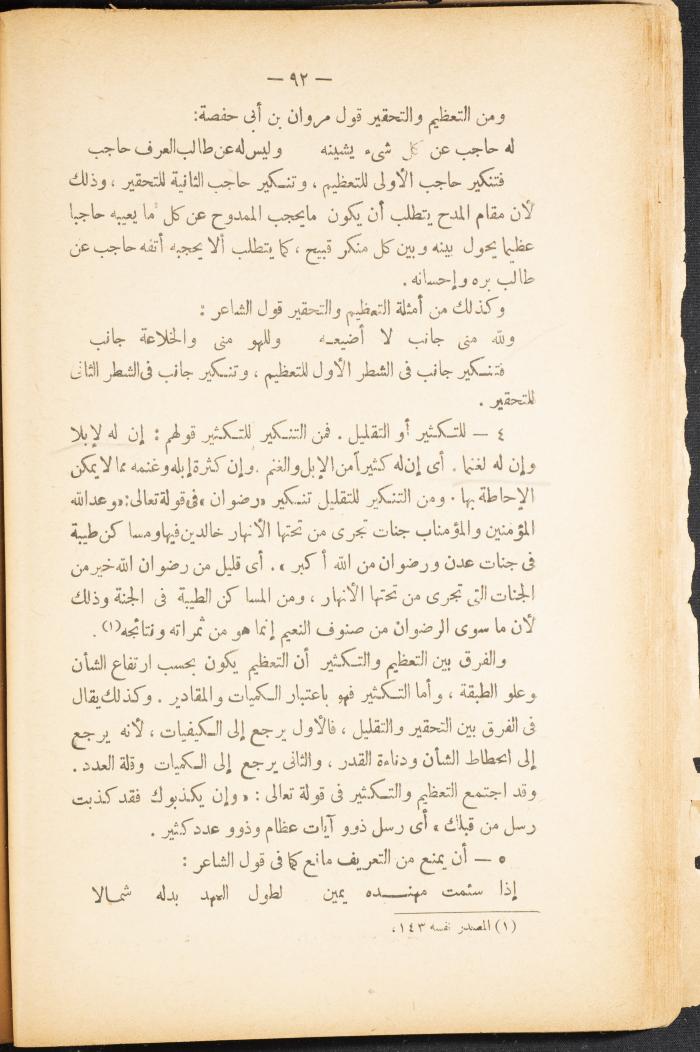 — ٩٢ —
ومن التعظيم والتحقير قول مروان بن أبى حفصة:
له حاجب عن كل شىء يشينه وليس له عن طالب العرف حاجب
فتنكير حاجب الأولى للتعظيم ، وتنكير حاجب الثانية للتحقير ، وذلك
لأن مقام المدح يتطلب أن يكون مايحجب الممدوح عن كل ما يعيبه حاجبا
عظيما يحول بينه وبين كل منكر قبيح ، كما يتطلب ألا يحجبه أتفه حاجب عن
طالب بره وإحسانه .
وكذلك من أمثلة التعظيم والتحقير قول الشاعر :
ولله منى جانب لا أضيعه وللهو منى والخلاعة جانب
فتنكير جانب فى الشطر الأول للتعظيم ، وتنكير جانب فى الشطر الثانى
للتحقير .
٤ — للتكثير أو التقليل . فمن التنكير للتكثير قولهم : إن له لإبلا
وإن له لغنما . أى إن له كثيراً من الإبل والغنم . وإن كثرة إبله وغنمه مما لا يمكن
الإحاطة بها . ومن التنكير للتقليل تنكير «رضوان» فى قولة تعالى : «وعد الله
المؤمنين والمؤمناب جنات تجرى من تحتها الأنهار خالدين فيها ومساكن طيبة
فى جنات عدن ورضوان من الله أكبر» . أى قليل من رضوان الله خير من
الجنات التى تجرى من تحتها الأنهار ، ومن المساكن الطيبة فى الجنة وذلك
لأن ما سوى الرضوان من صنوف النعيم إنما هو من ثمراته ونتائجه(١) .
والفرق بين التعظيم والتكثير أن التعظيم يكون بحسب ارتفاع الشأن
وعلو الطبقة ، وأما التكثير فهو باعتبار الكميات والمقادير . وكذلك يقال
فى الفرق بين التحقير والتقليل ، فالأول يرجع إلى الكيفيات ، لأنه يرجع
إلى انحطاط الشأن ودناءة القدر ، والثانى يرجع إلى الكميات وقلة العدد .
وقد اجتمع التعظيم والتكثير فى قولة تعالى : «وإن يكذبوك فقد كذبت
رسل من قبلك» أى رسل ذوو آيات عظام وذوو عدد كثير .
٥ — أن يمنع من التعريف مانع كما فى قول الشاعر :
إذا سئمت مهنده يمين لطول العهد بدله شمالا
(١) المصدر نفسه ١٤٣.